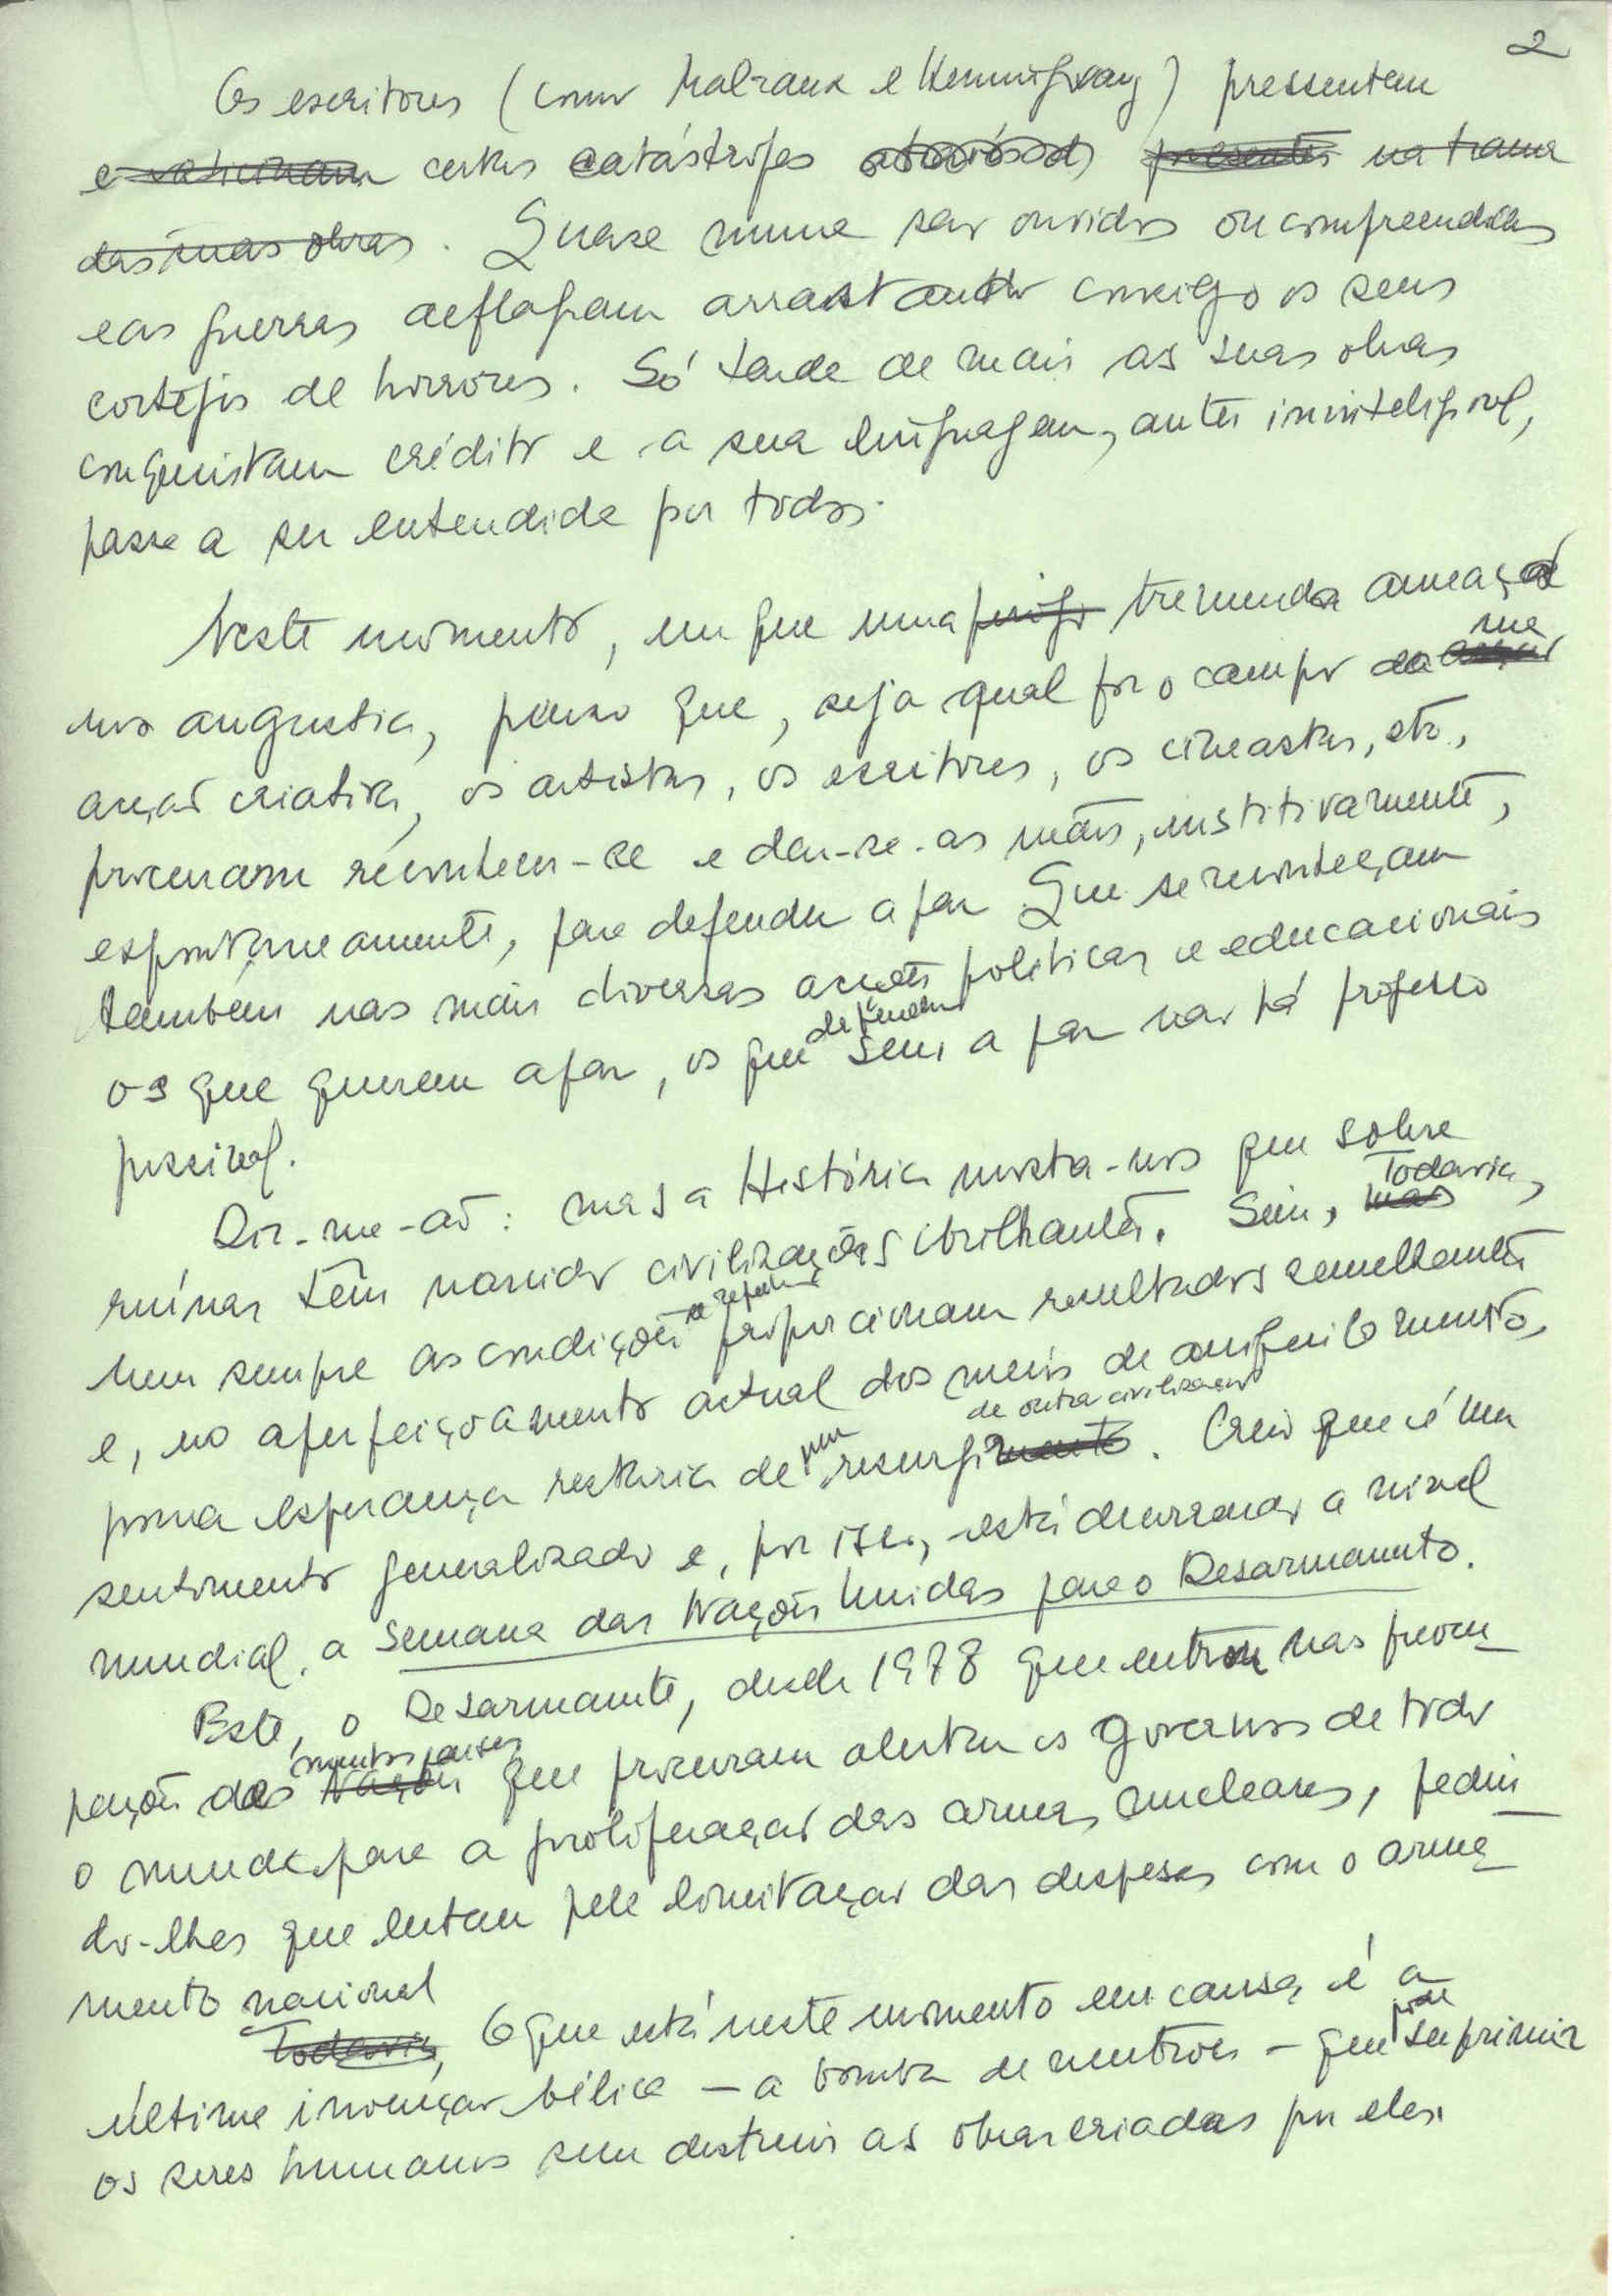 2
Os escritores (como Malraux e Hemingway) pressentem
e vaticinam certas catástrofes através de presentes na trama
das suas obras. Quase nunca são ouvidos ou compreendidos
e as guerras deflagram arrastando consigo os seus
cortejos de horrores. Só tarde de mais as suas obras
conquistam crédito e a sua linguagem, antes ininteligível,
passa a ser entendida por todos.
Neste momento, em que uma perigo tremenda ameaça
sua
nos angustia, penso que, seja qual for o campo da
acção criativa, os artistas, os escritores, os cineastas, etc.,
procuram reconhecer-se e dar-se as mãos, institivamente,
espontaneamente, para defender a paz. Que se reconheçam
também nas mais diversas acções políticas e educacionais
defendem
os que querem a paz, os que sem a paz não há progresso
possível.
Dir-me-ão: mas a História mostra-nos que sobre
Todavia,
ruínas têm nascido civilizações brilhantes. Sim, mas
se repetem
nem sempre as condições proporcionam resultados semelhantes
e, no aperfeiçoamento actual dos meios de aniquilamento,
de outra civilização
num
pouca esperança restaria de resurgimento. Creio que é um
sentimento generalizado e, por isso, está decorrendo a nível
mundial, a Semana das Nações Unidas para o Desarmamento.
Este, o Desarmamento, desde 1978 que entrou nas preocu
muitos países
pações dos Nações que procuram alertar os governos de todo
o mundo para a proliferação das armas nucleares, pedin
do-lhes que lutem pela limitação das despesas com o arma
mento nacional
Todavia, O que está neste momento em causa, é a
pode
última invenção bélica — a bomba de neutrões — que suprimir
os seres humanos sem destruir as obras criadas por eles.